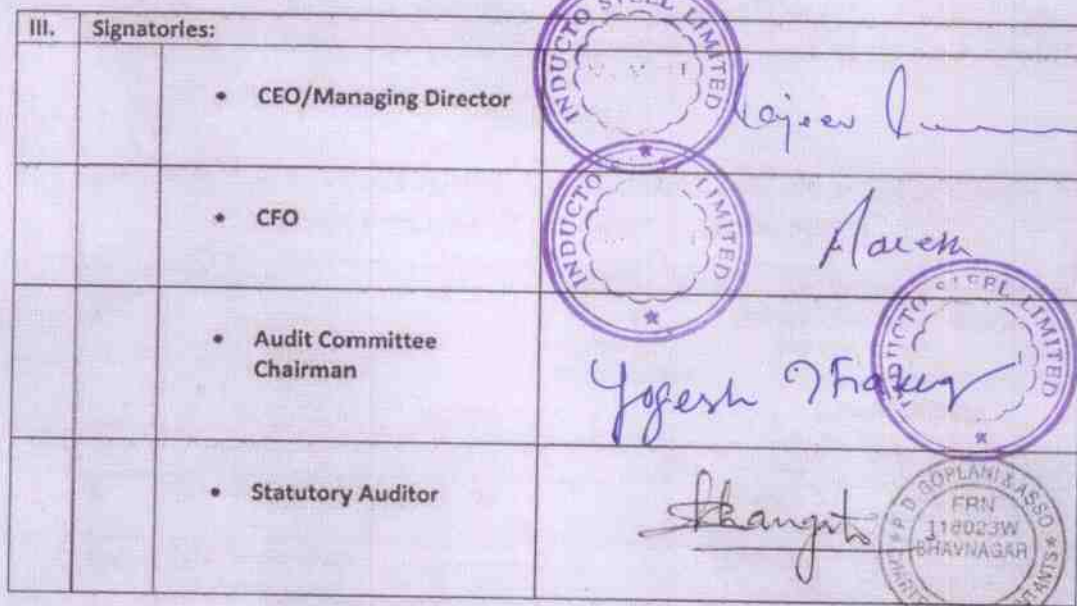 III. Signatories:
• CEO/Managing Director
INDUCTO STEEL LIMITED
Rajeev
• CFO
INDUCTO LIMITED
• Audit Committee
Chairman
Yogesh Thakur
INDUCTO STEEL LIMITED
• Statutory Auditor
P D GOPLANI & ASSO
FRN
118023W
BHAVNAGAR